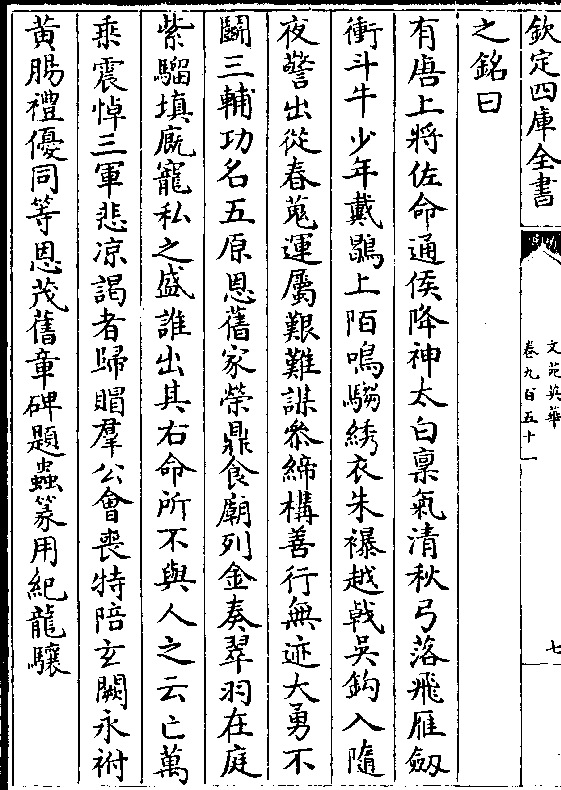 欽定四庫全書
文苑英華
卷九百五十一
七
之銘曰
有唐上將佐命通侯降神太白禀氣清秋弓落飛雁劒
衝斗牛少年戴鶡上陌鳴騶綉衣朱襮越戟吳鈎入隨
夜警出從春蒐運屬艱難謀參締構善行無迹大勇不
鬬三輔功名五原恩舊家榮鼎食廟列金奏翠羽在庭
紫騮填廐寵私之盛誰出其右命所不與人之云亡萬
乘震悼三軍悲凉謁者歸賵羣公會喪特陪玄闕永祔
黄腸禮優同等恩茂舊章碑題蟲篆用紀龍驤